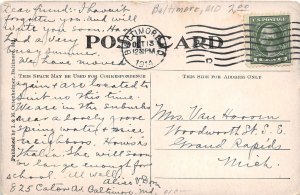 Baltimore, MD 2.00
Dear friend: I haven't
forgotten you and will
write you soon. Have
had a very
busy summer.
We have moved
POST CARD
BALTIMORE, MD.
12 30 PM
1914
THIS SPACE MAY BE USED FOR CORRESPONDENCE
THIS SIDE FOR ADDRESS ONLY
again & are located to
suit us this time.
We are in the suburbs
near a lovely grove
spring water & nice
neighbors. Hows
Thalia. She will soon
be large enough for
school. All well.
825 Calvert Ave. Baltimore, Md.
Mrs. Van Hooven
Woodworth St. E. E.
Grand Rapids
Mich.
Published by I. & M. Ottenheimer, Baltimore, Md.